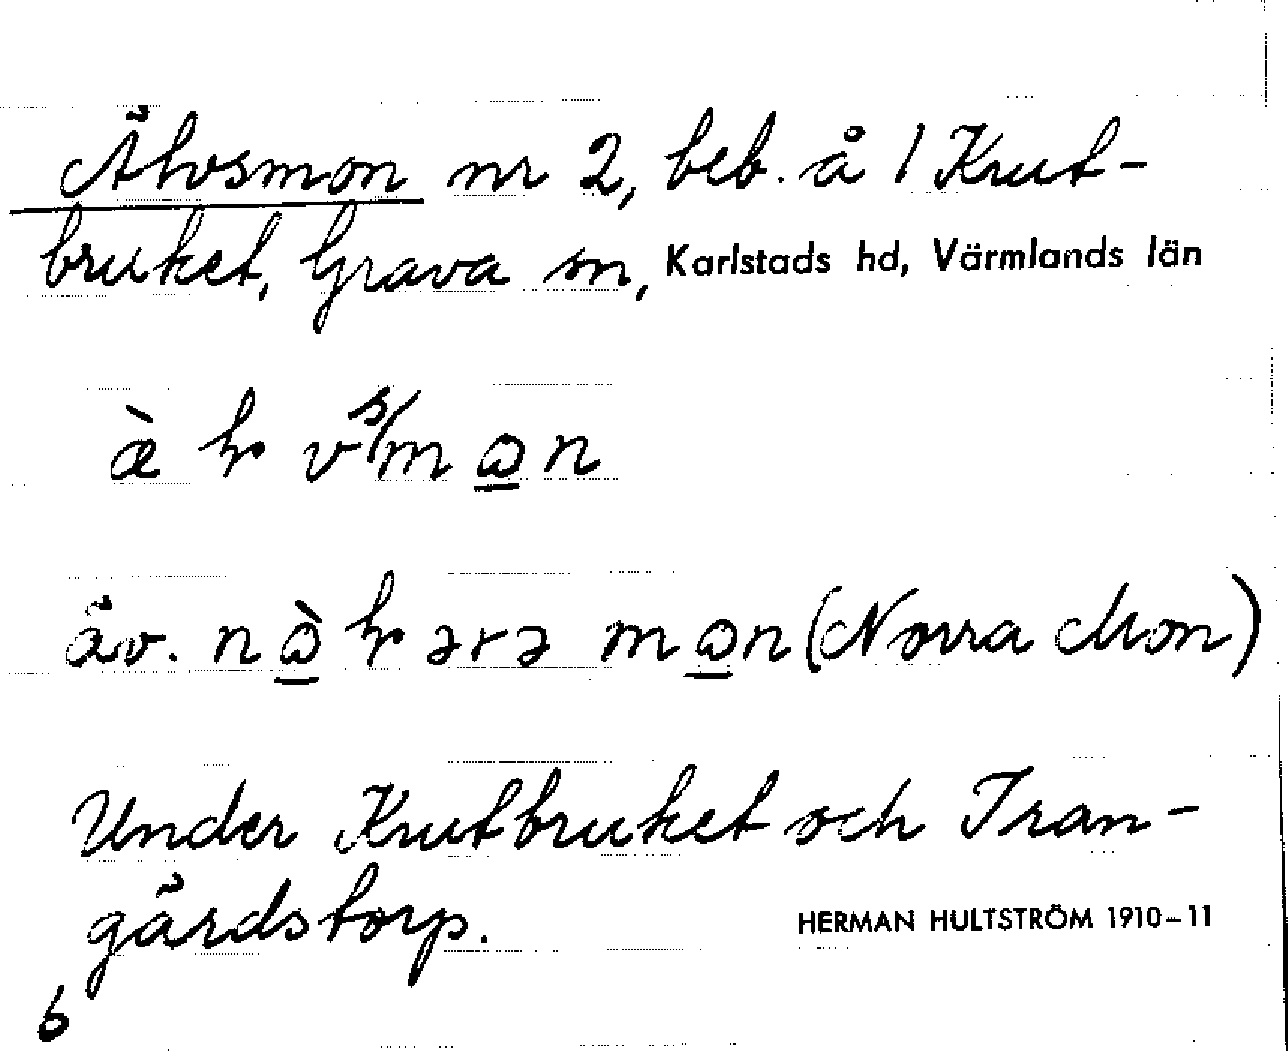 Älvsmon nr 2, beb. å 1 Krut-
bruket, Grava sn, Karlstads hd, Värmlands län
äv. (Norra Mon)
Under Krutbruket och Tran-
gärdstorp.
HERMAN HULTSTRÖM 1910-11
6